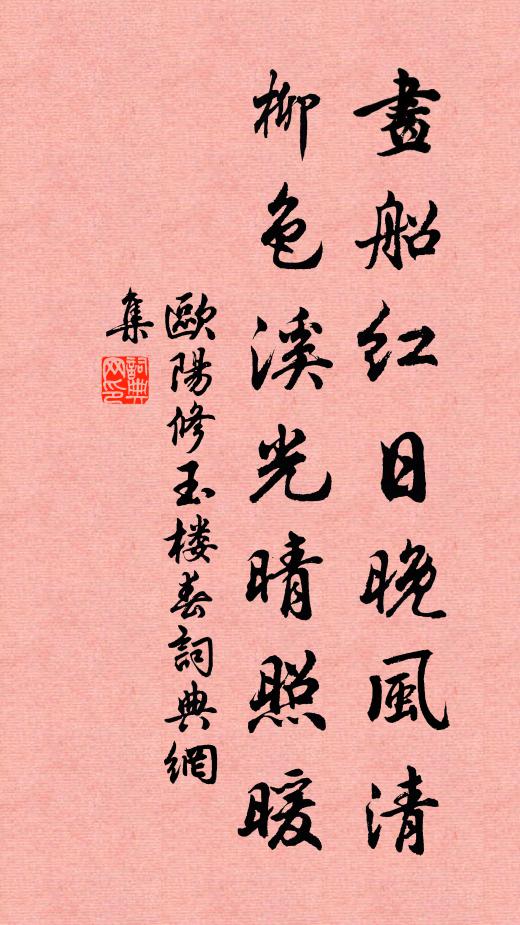 畫船紅日晚風清
柳色溪光晴照暖
歐陽修玉楼春詞典網
集
詞典
网印